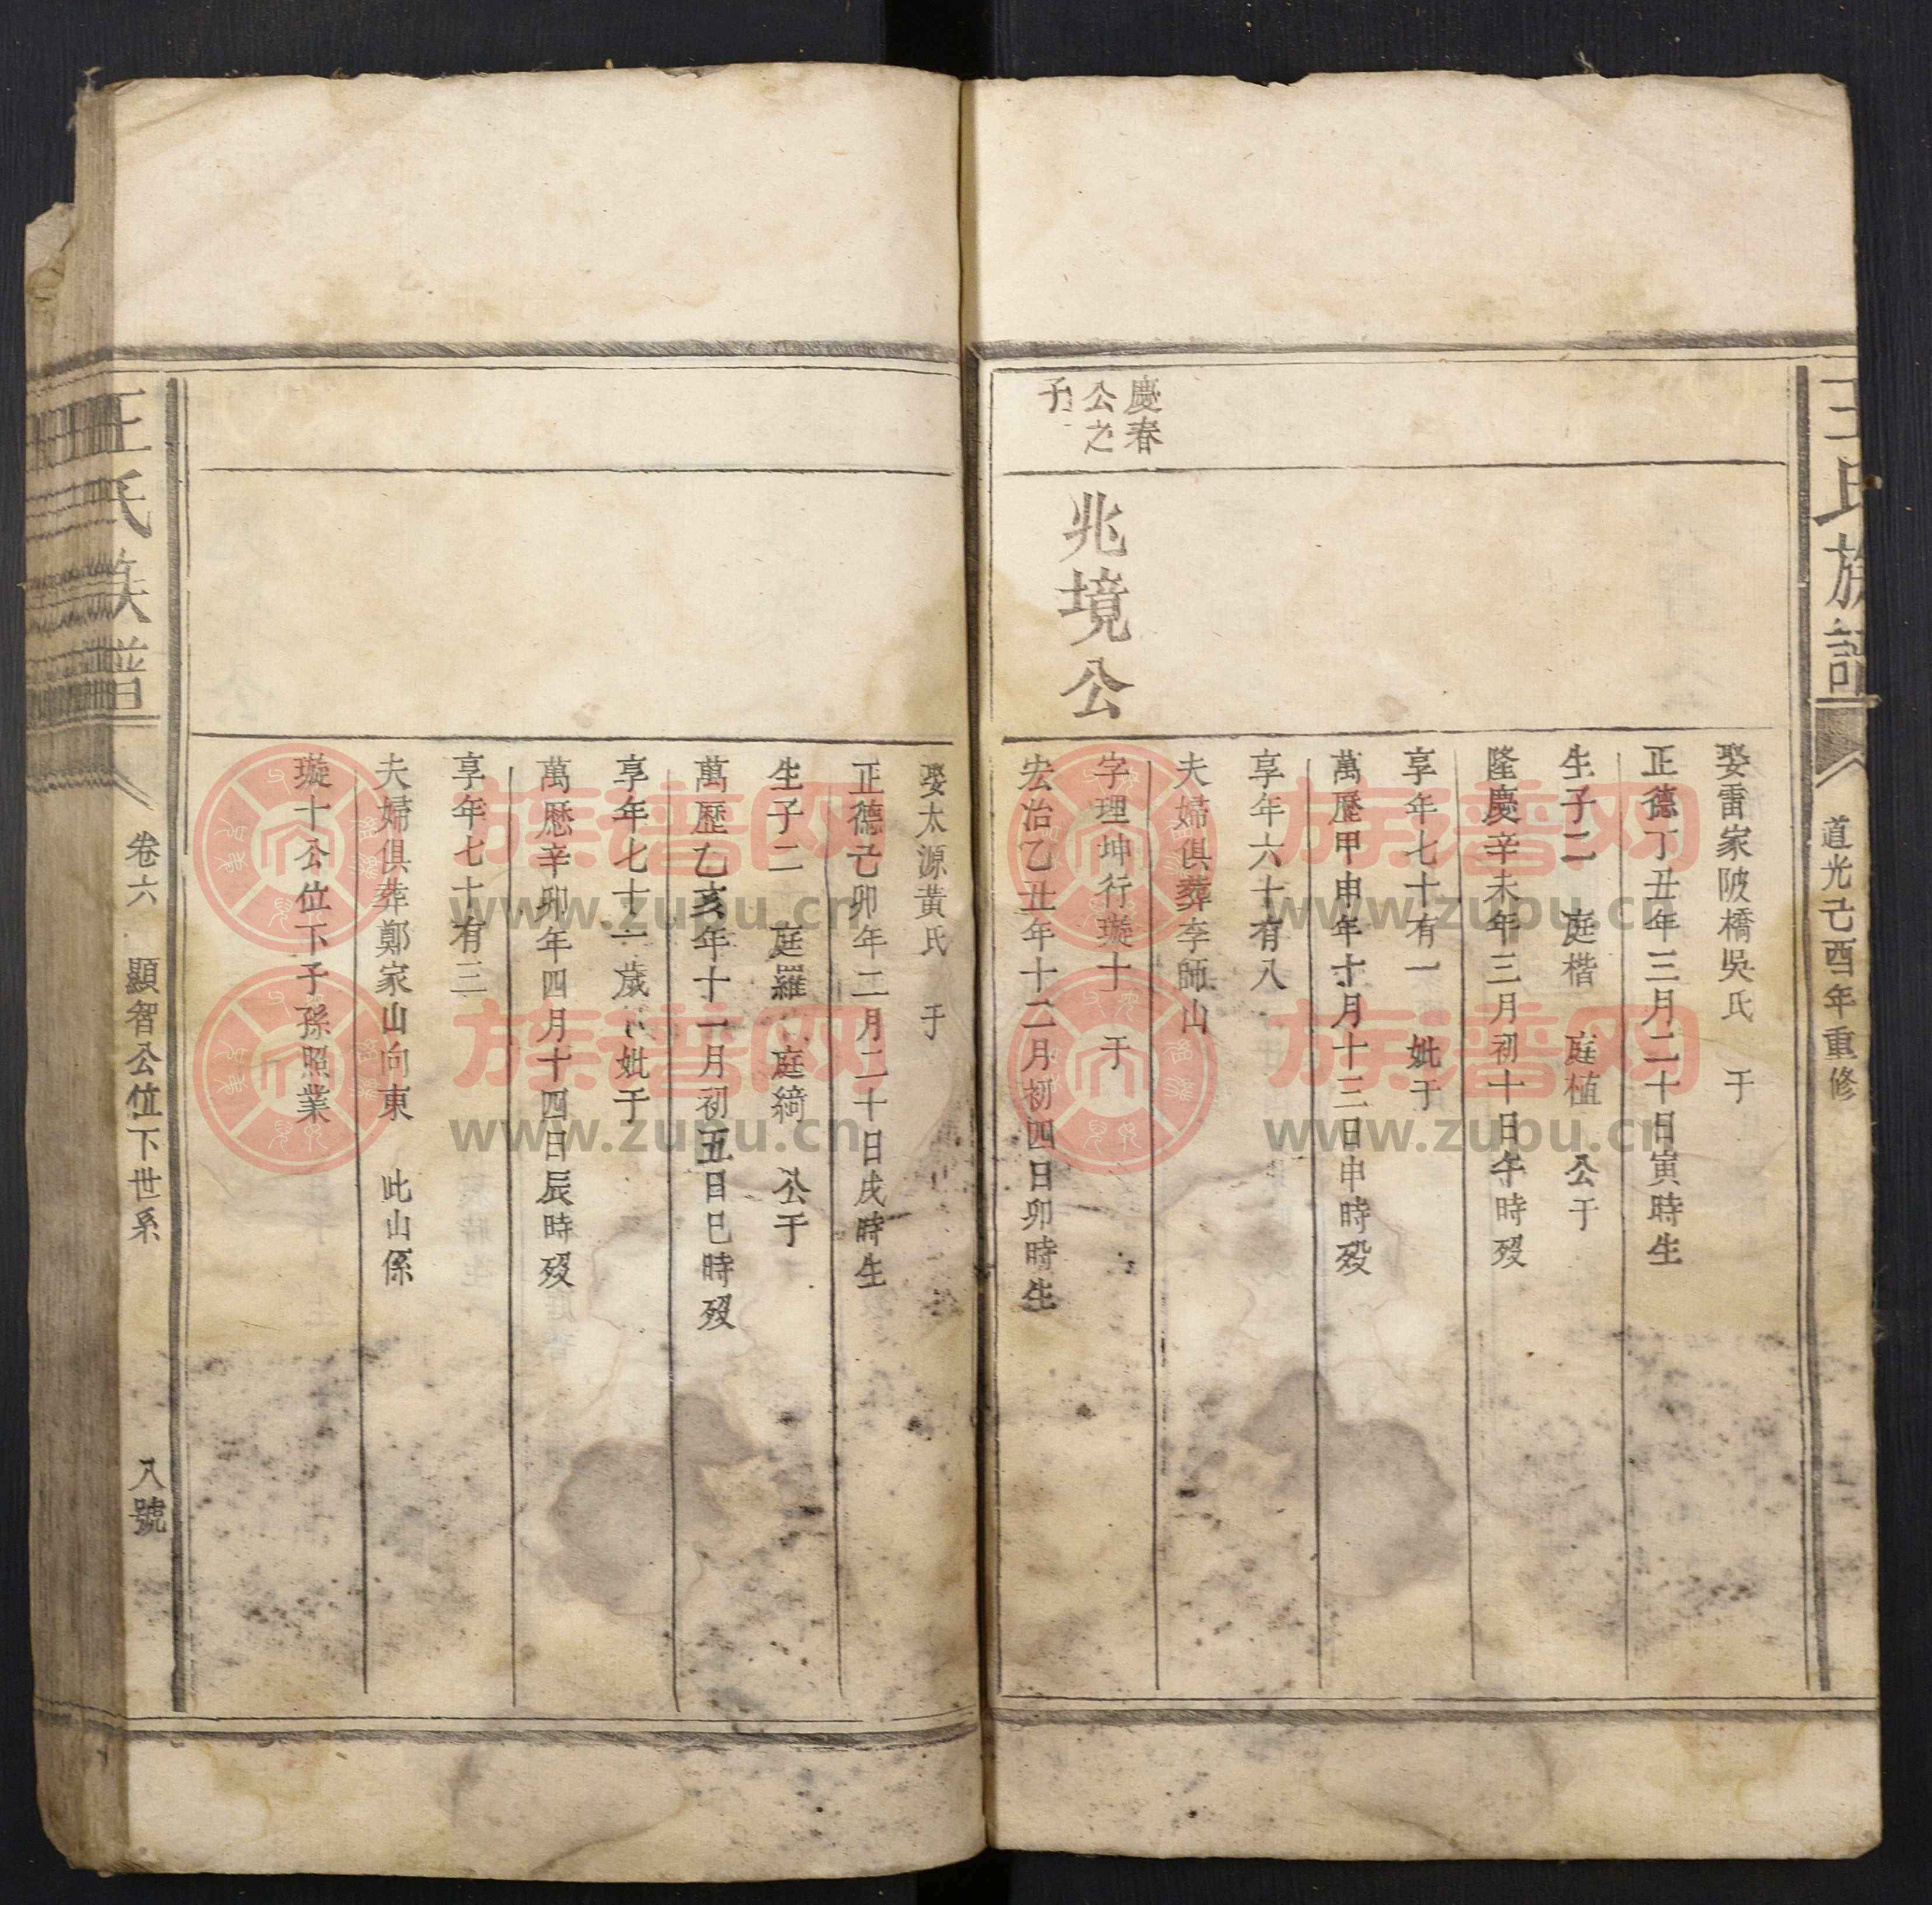 王氏族譜
道光己酉年重修
娶雷家陂橋吳氏　于
正德丁丑年三月二十日寅時生
生子二　庭楷　庭植　公于
隆慶辛未年三月初十日午時歿
享年七十有一　妣于
萬歷甲申年十月十三日申時歿
享年六十有八
夫婦俱葬李師山
慶春
公之
子
兆境公
字理坤行璇十　于
宏治乙丑年十二月初四日卯時生
娶太源黃氏　于
正德己卯年二月二十日戌時生
生子二　庭羅　庭綺　公于
萬歷乙亥年十一月初五日巳時歿
享年七十一歲　妣于
萬歷辛卯年四月十四日辰時歿
享年七十有三
夫婦俱葬鄭家山向東　此山係
璇十公位下子孫照業
王氏族譜
卷六　顯智公位下世系　八號
族譜网
www.zupu.cn
族譜网
www.zupu.cn
族譜网
www.zupu.cn
族譜网
www.zupu.cn